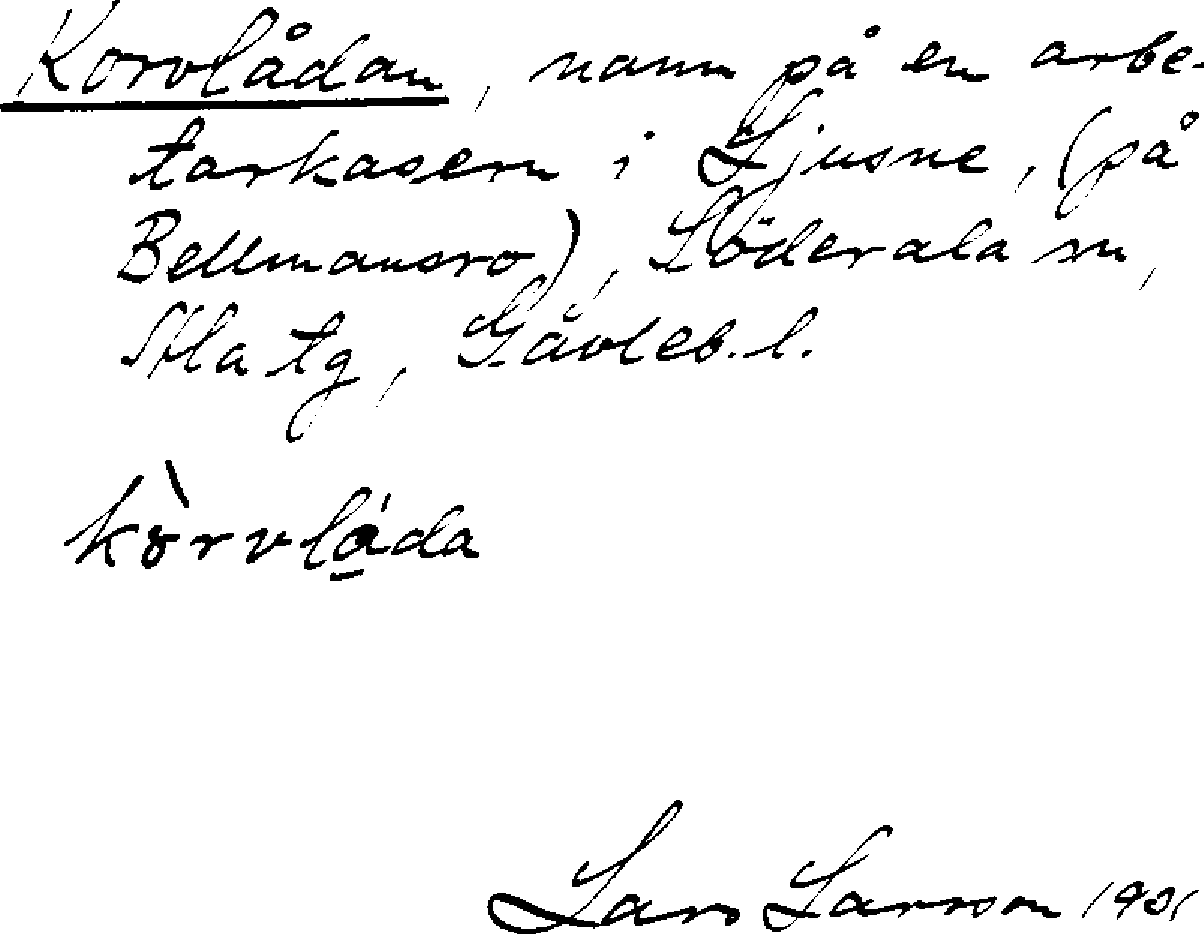 Korvlådan, namn på en arbe-
tarkasern i Ljusne, (på
Bellmansro), Söderala sn,
Ala tg, Gävleb. l.
kòrvlåda
Lars Larsson